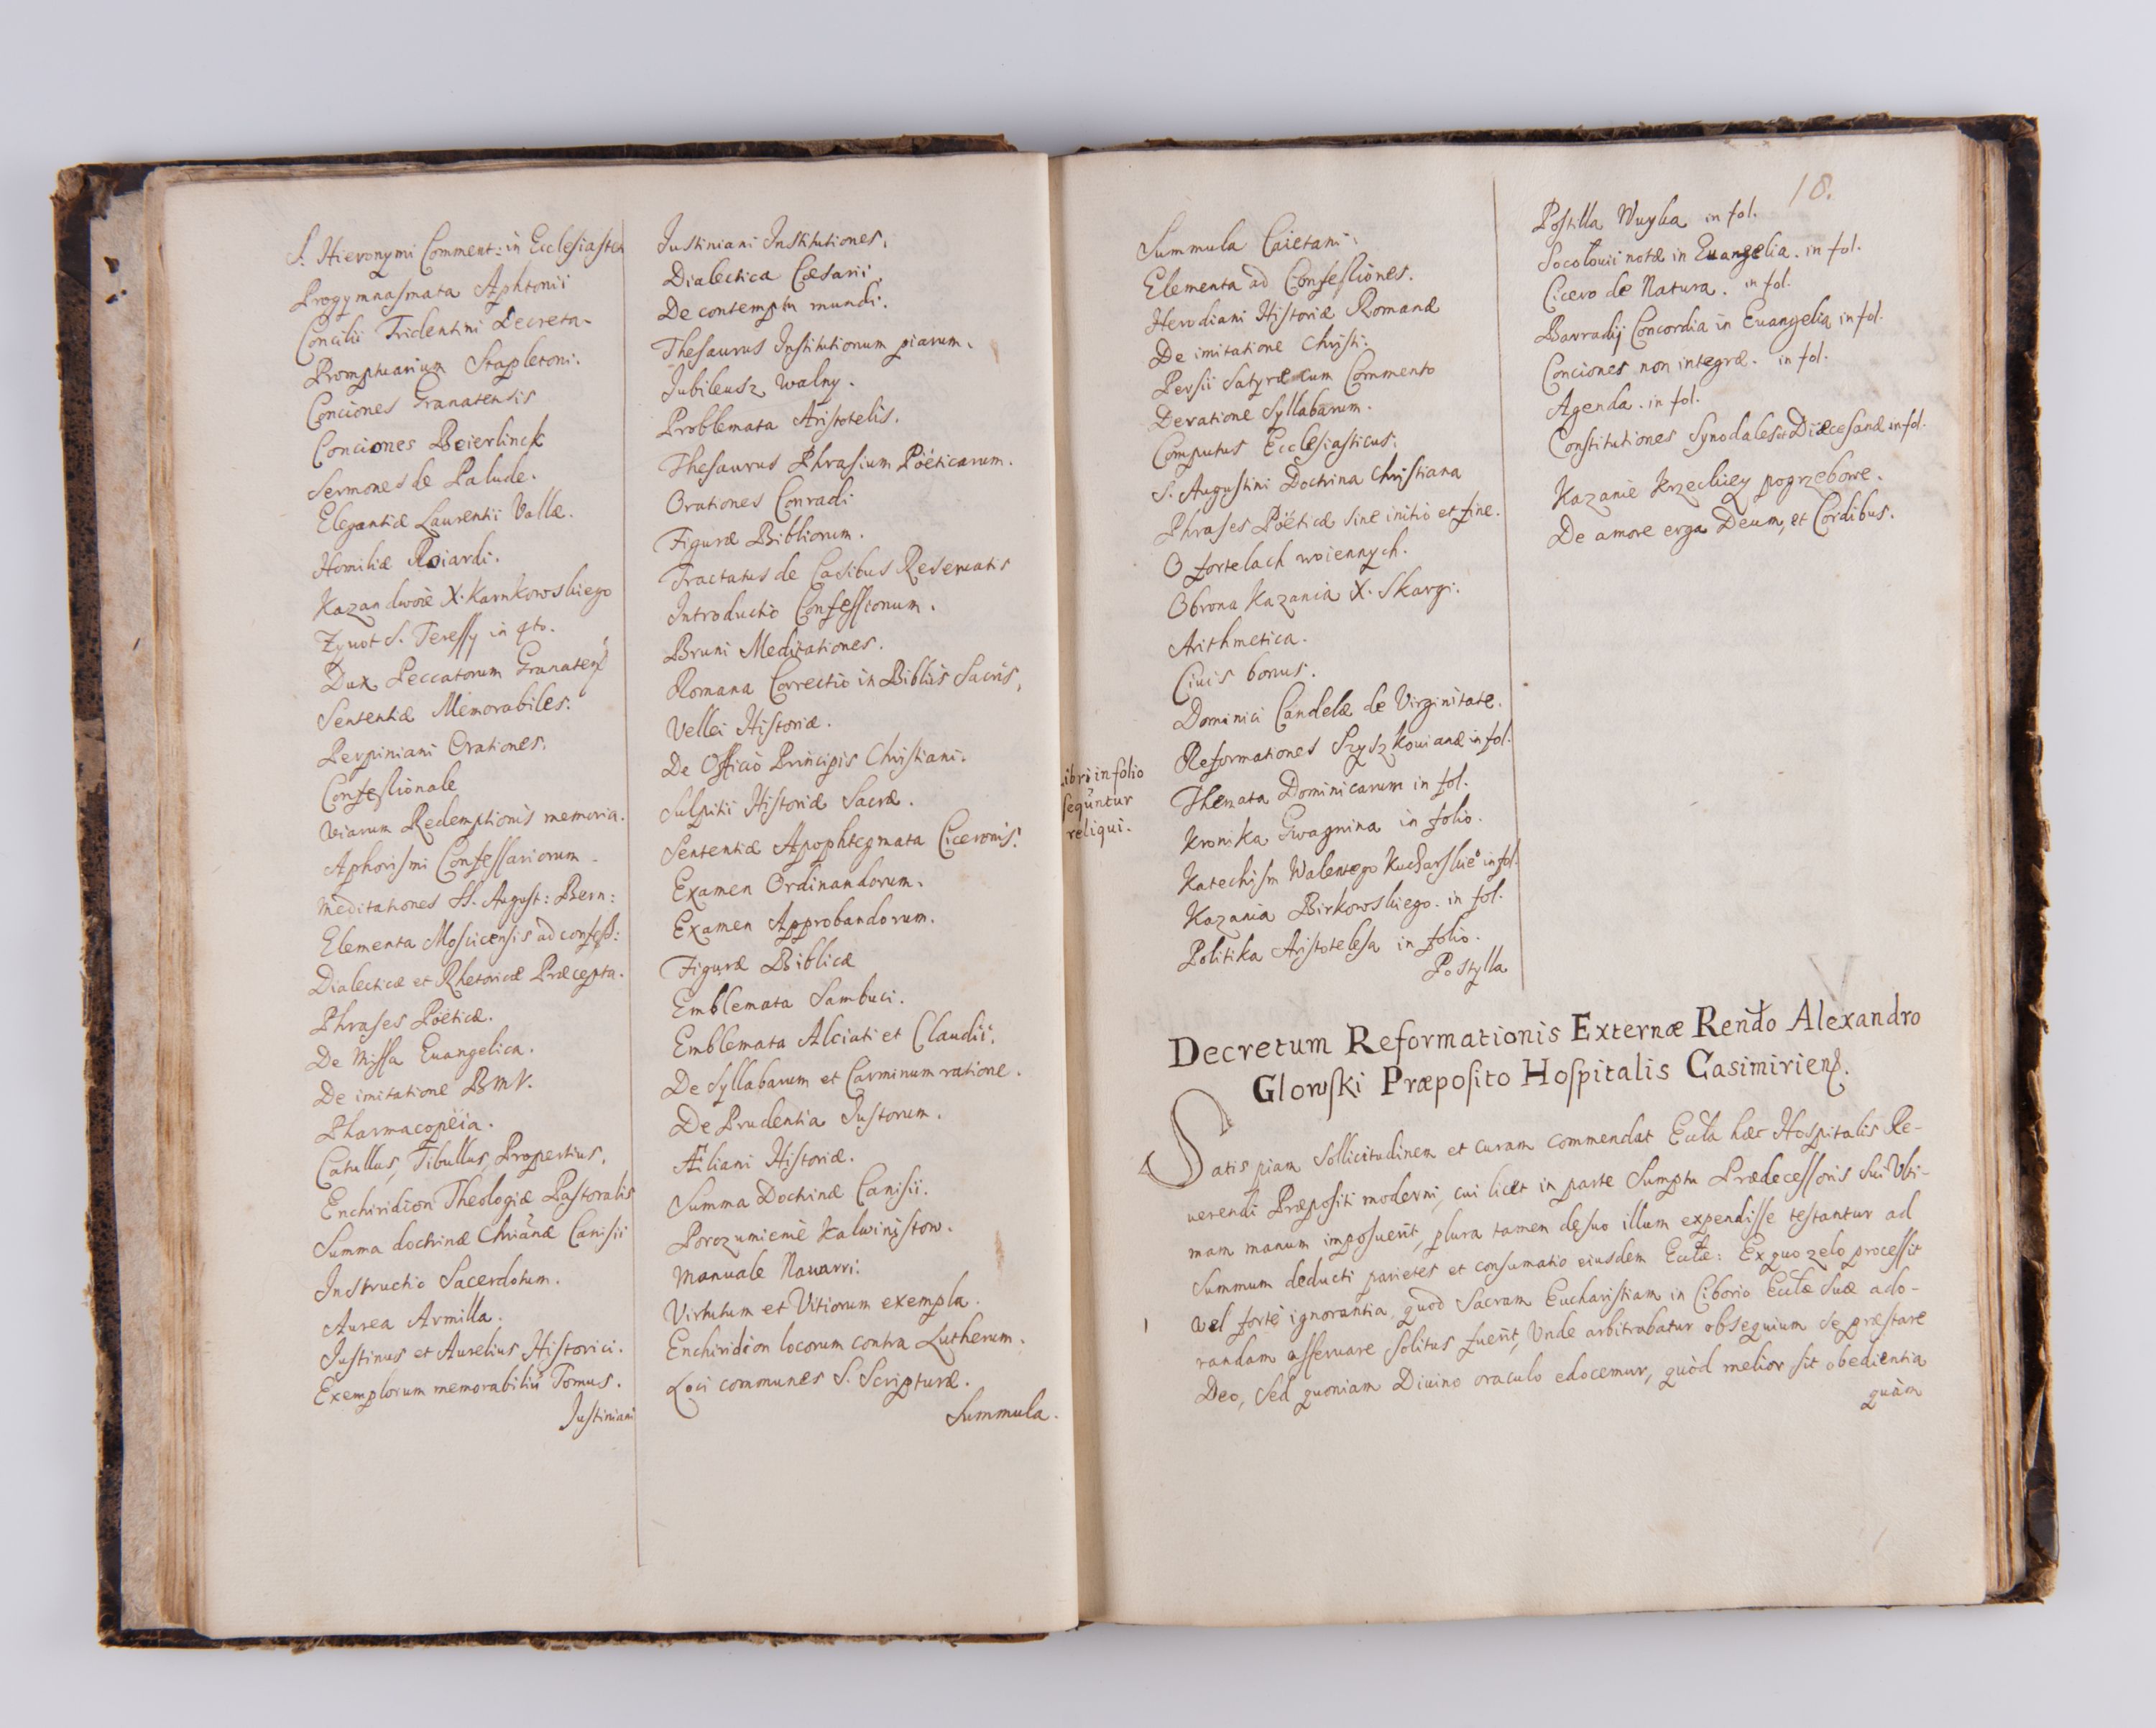 S. Hieronymi Comment: in Ecclesiasten
Progymnasmata Aphtonii
Concilii Tridentini Decreta.
Promptuarium Stapletoni.
Conciones Granatensis
Conciones Beierlinck
Sermones de Palude.
Elegantiæ Laurentii Vallæ.
Homiliæ Roiardi.
Kazan dwoie X. Karnkowskiego
Zywot S. Teressy in 4to.
Dux Peccatorum Granateñ
Sententiæ Memorabiles.
Perpiniani Orationes.
Confessionale
Viarum Redemptionis memoria.
Aphorismi Confessariorum.
Meditationes SS. August: Bern:
Elementa Moscicensis ad confess:
Dialecticæ et Rhetoricæ Præcepta.
Phrases Poëticæ.
De Missa Euangelica.
De imitatione BMV.
Pharmacopëia.
Catullus, Tibullus, Propertius,
Enchiridion Theologiæ Pastoralis
Summa doctrinæ Chrianæ Canisii
Instructio Sacerdotum.
Aurea Armilla.
Justinus et Aurelius Historici.
Exemplorum memorabiliũ Tomus.
Justiniani
Justiniani Institutiones.
Dialectica Cæsarii.
De contemptu mundi.
Thesaurus Institutionum piarum.
Iubileusz walny.
Problemata Aristotelis.
Thesaurus Phrasium Poëticarum.
Orationes Conradi
Figuræ Bibliorum.
Tractatus de Casibus Reseruatis
Introductio Confessionum.
Bruni Meditationes.
Romana Correctio in Bibliis Sacris,
Vellei Historiæ.
De Officio Principis Christiani.
Sulpitii Historiæ Sacræ.
Sententiæ Apophtegmata Ciceronis.
Examen Ordinandorum.
Examen Approbandorum.
Figuræ Biblicæ
Emblemata Sambuci.
Emblemata Alciati et Claudii.
De Syllabarum et Carminum ratione.
De Prudentia Iustorum.
Æliani Historiæ.
Summa Doctrinæ Canisii.
Porozumienie Kalwinistow.
Manuale Nauarri.
Virtutum et Vitiorum exempla.
Enchiridion locorum contra Lutherum.
Loci communes S. Scripturæ.
Summula.
18.
Summula Caietani.
Elementa ad Confessiones.
Herodiani Historiæ Romanæ
De imitatione Christi.
Persii Satyræ cum Commento
De ratione Syllabarum.
Computus Ecclesiasticus.
S. Augustini Doctrina Christiana
Phrases Poëticæ sine initio et fine.
O fortelach woiennych.
Obrona Kazania X. Skargi.
Arithmetica.
Ciuis bonus.
Dominici Candelæ de Virginitate.
Reformationes Szyszkouianæ in fol.
Themata Dominicarum in fol.
Kronika Gwagnina in folio.
Katechism Walentego Kucharskieo in fol.
Kazania Birkowskiego. in fol.
Politika Aristotelesa in folio.
Postylla
Libri in folio
sequntur
reliqui.
Postilla Wuyka in fol.
Socolouii notæ in Euangelia. in fol.
Cicero de Natura. in fol.
Barradij Concordia in Euangelia in fol.
Conciones non integræ. in fol.
Agenda. in fol.
Constitutiones Synodales et Diæcesanæ in fol.
Kazanie pogrzebowe.
De amore erga Deum, et Cordibus.
Decretum Reformationis Externæ Rendo Alexandro
Glowski Præposito Hospitalis Casimirien̄.
Satis piam sollicitudinem et curam commendat Eccla hæc Hospitalis Re-
uerendi Præpositi moderni, cui licet in parte Sumptu Prædecessoris sui Vlti-
mam manum imposuerit, plura tamen de suo illum expendisse testantur ad
Summum deducti parietes et consumatio eiusdem Ecclæ: Ex quo zelo processit
vel forte ignorantia, quod Sacram Eucharistiam in Ciborio Ecclæ Suæ ado-
randam asseruare solitus fuerit, Vnde arbitrabatur obsequium se præstare
Deo, Sed quoniam Diuino oraculo edocemur, quòd melior sit obedientia
quàm